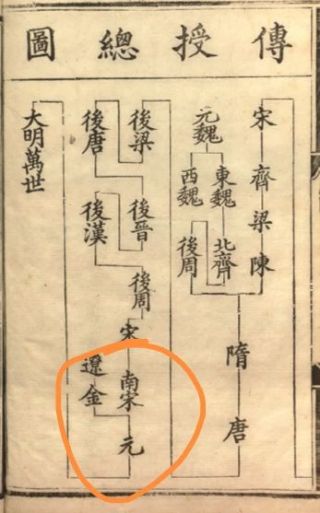 傳授總圖
宋齊梁陳
元魏
東魏
西魏
北齊
後周
隋唐
後梁
後唐
後晉
後漢
後周
宋
南宋
遼金
元
大明萬世